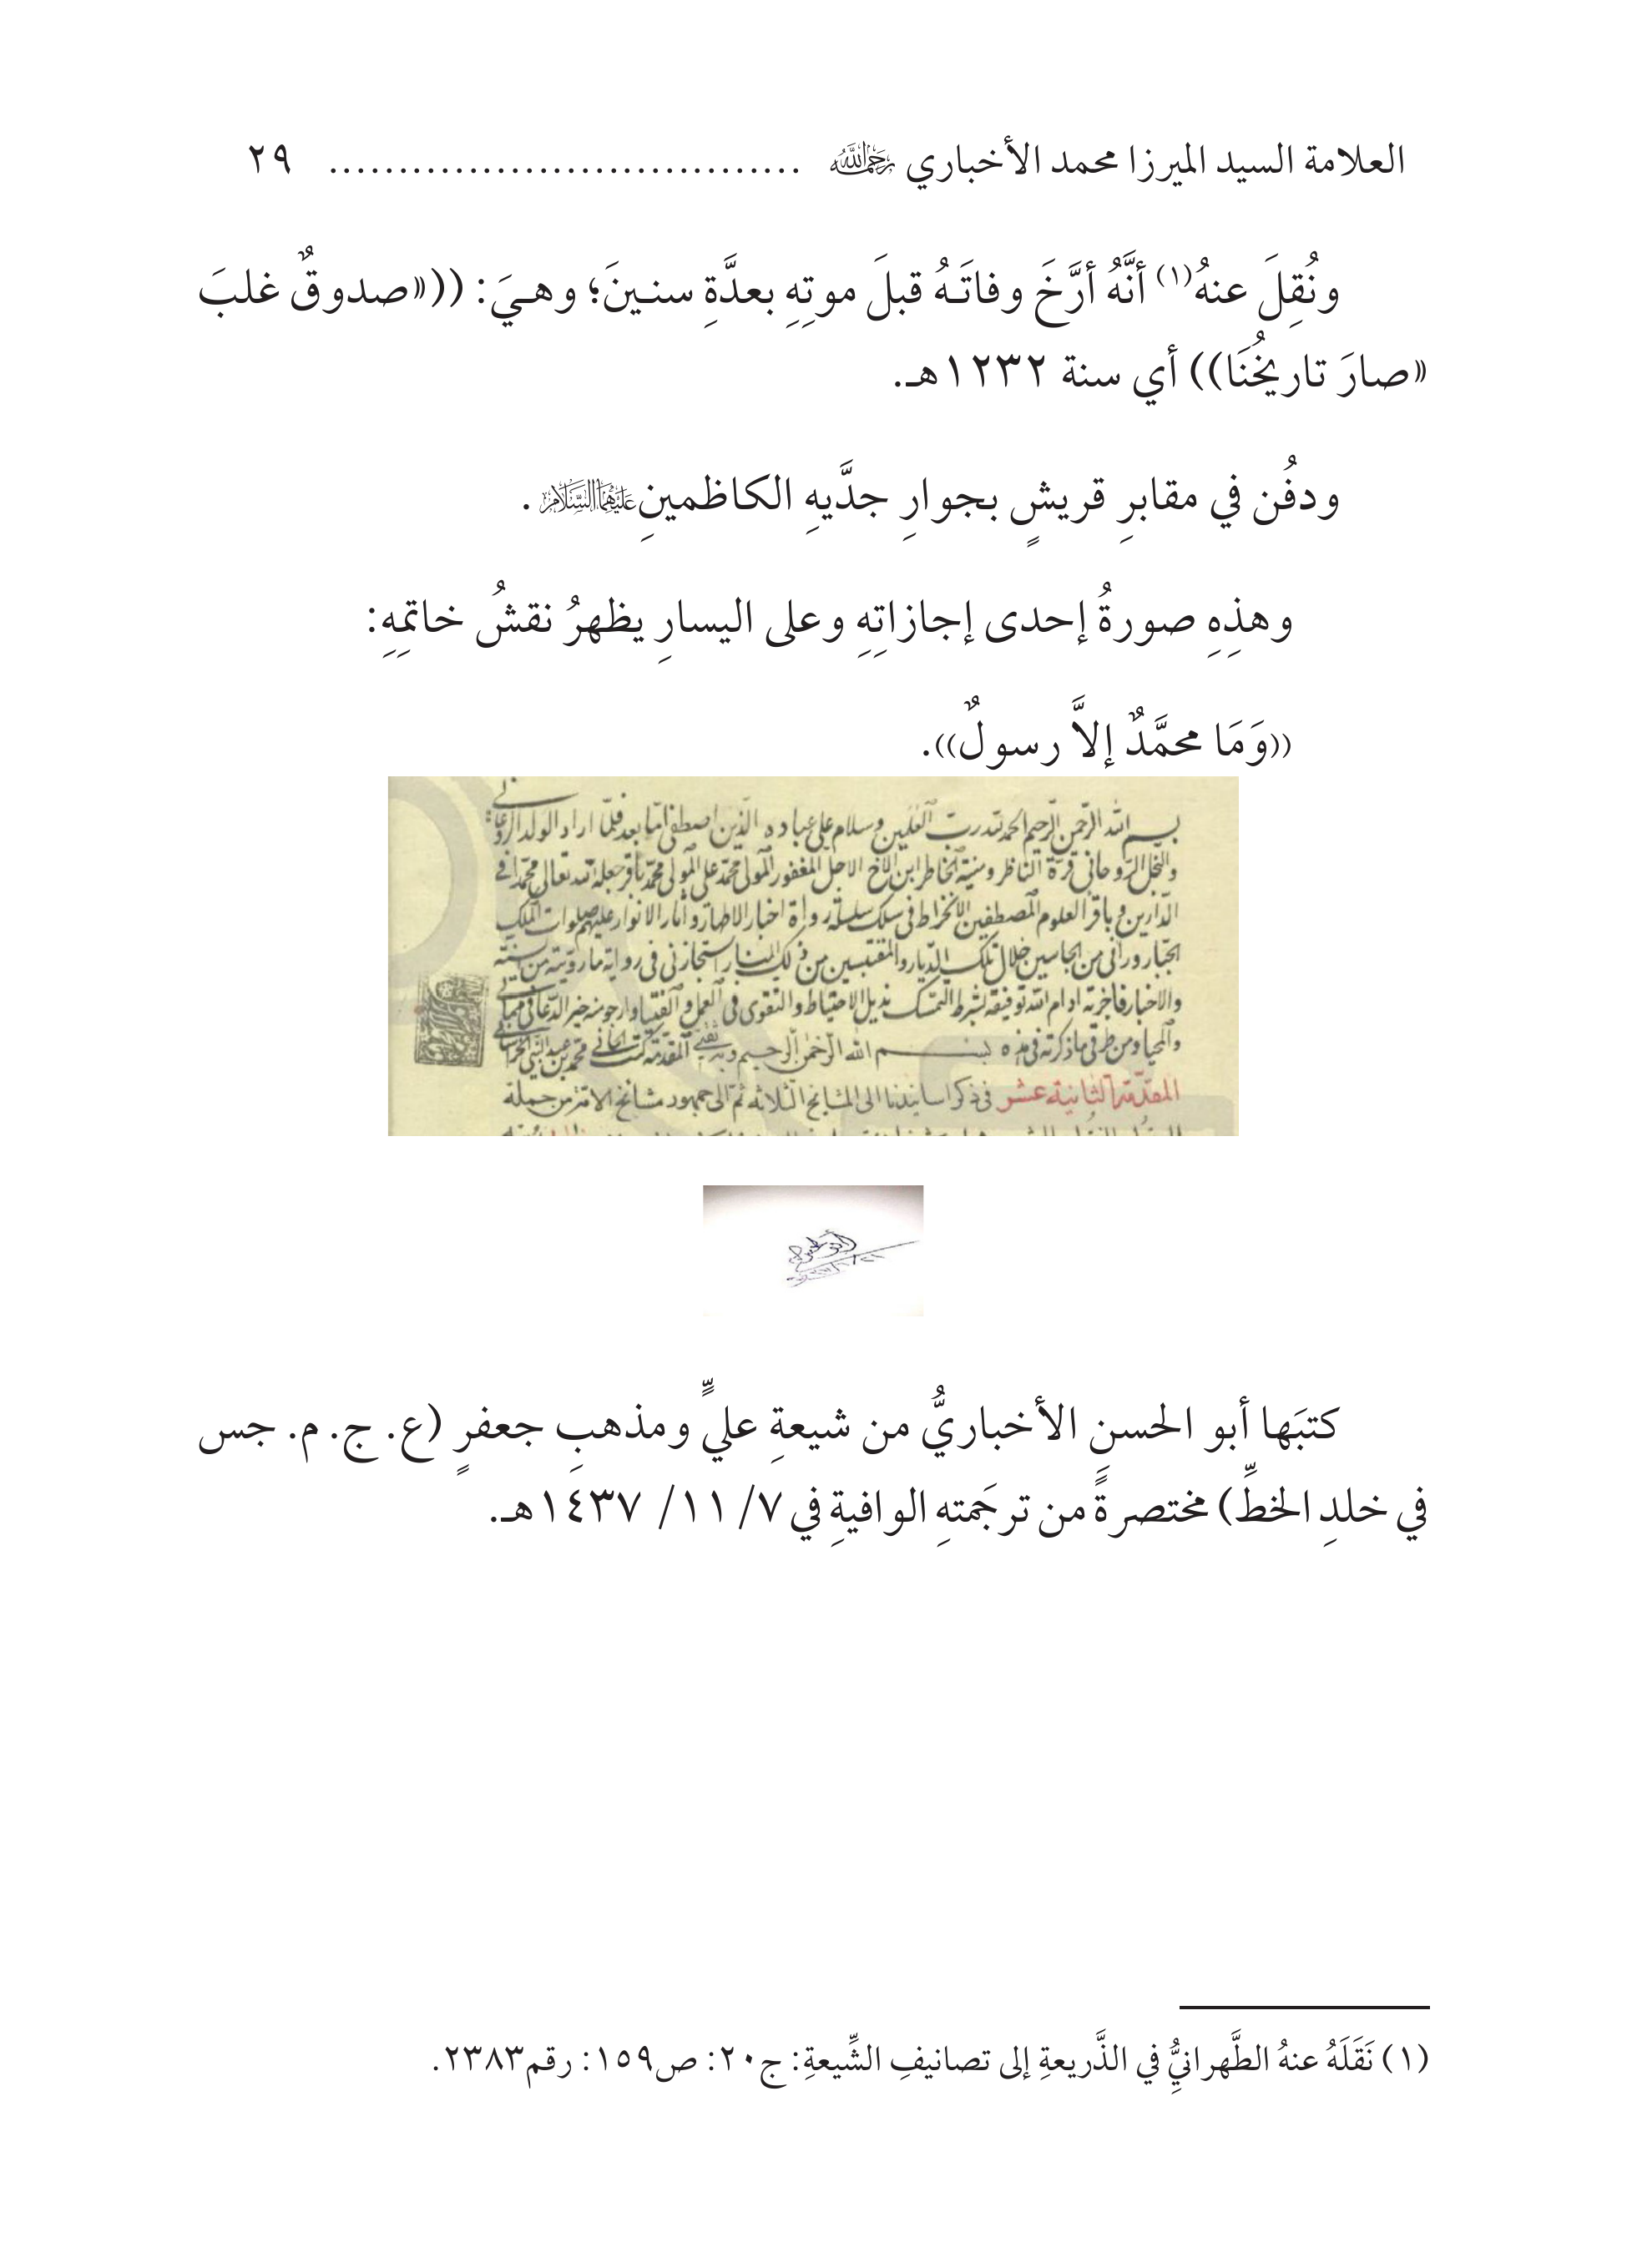 العلامة السيد الميرزا محمد الأخباري رحمه الله .................................. ٢٩
ونُقِلَ عنهُ(١) أنَّهُ أرَّخَ وفاتَـهُ قبلَ موتِهِ بعدَّةِ سنـينَ؛ وهـيَ: ((«صدوقٌ غلبَ
«صارَ تاريخُنَا)) أي سنة ١٢٣٢هـ.
ودفُن في مقابرِ قريشٍ بجوارِ جدَّيهِ الكاظمينِ عليهما السلام .
وهذِهِ صورةُ إحدى إجازاتِهِ وعلى اليسارِ يظهرُ نقشُ خاتمِهِ:
((وَمَا محمَّدٌ إلاَّ رسولٌ)).
بسم الله الرحمن الرحيم الحمد لله رب العلمين وسلام على عباده الذين اصطفى اما بعد فلما اراد الولد
والنجل الروحاني قرة الناظر ومنية الخاطر ابن الاخ الاجل المغفور المولى محمد على المولى محمد باقر جعله الله تعالى محمدا في
الدارين وباقر العلوم المصطفين الانخراط في سلك سلسلة رواة اخبار الاطهار واثار الانوار عليهم صلوات الملك
الجبار وراني من الجاسين خلال تلك الديار والمقتبسين من ذلك المنار استجازني في رواية ما رويته من
والاخبار فاجزته ادام الله توفيقه بشرط التمسك بذيل الاحتياط والتقوى في العمل والفتيا وارجو منه خير الدعا في
والمحيا ومن طرقي ما ذكرته في هذه بسم الله الرحمن الرحيم وبه ثقتي المقدمة كتب الجاني محمد بن عبد النبي
المقدمة الثانية عشر في ذكر اسانيدنا الى المشايخ الثلاثة ثم الى جمهور مشايخ الامة من جملة
كتبَها أبو الحسنِ الأخباريُّ من شيعةِ عليٍّ ومذهبِ جعفرٍ (ع. ج. م. جس
في خلدِ الخطِّ) مختصرةً من ترجَمتهِ الوافيةِ في ٧/ ١١/ ١٤٣٧هـ.
(١) نَقَلَهُ عنهُ الطَّهرانيُّ في الذَّريعةِ إلى تصانيفِ الشِّيعةِ: ج٢٠: ص١٥٩: رقم٢٣٨٣.